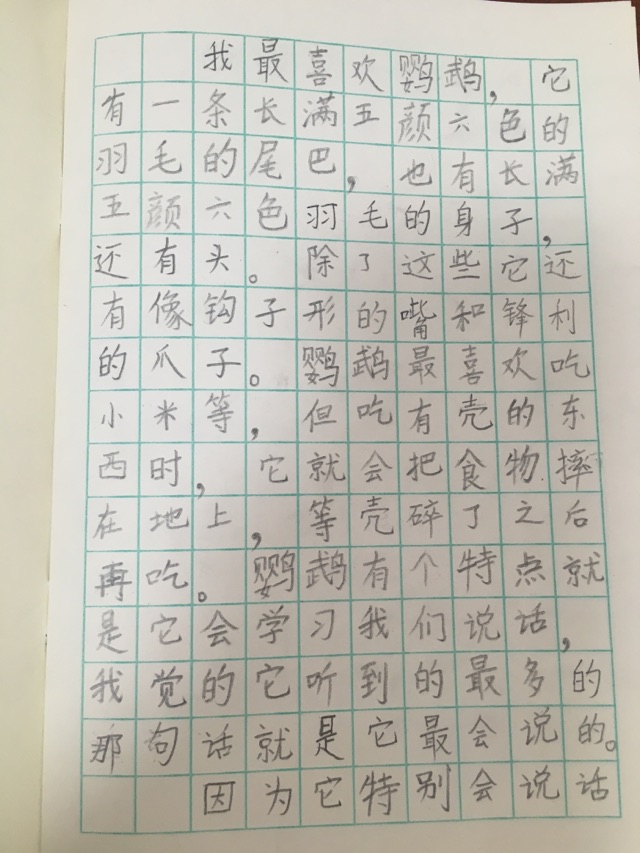 我最喜欢鹦鹉，它
有一条长满五颜六色的
羽毛的尾巴，也有长满
五颜六色羽毛的身子，
还有头。除了这些它还
有像钩子形的嘴和锋利
的爪子。鹦鹉最喜欢吃
小米等，但吃有壳的东
西时，它就会把食物摔
在地上，等壳碎了之后
再吃。鹦鹉有个特点就
是它会学习我们说话，
我觉的它听到的最多的
那句话就是它最会说的。
因为它特别会说话